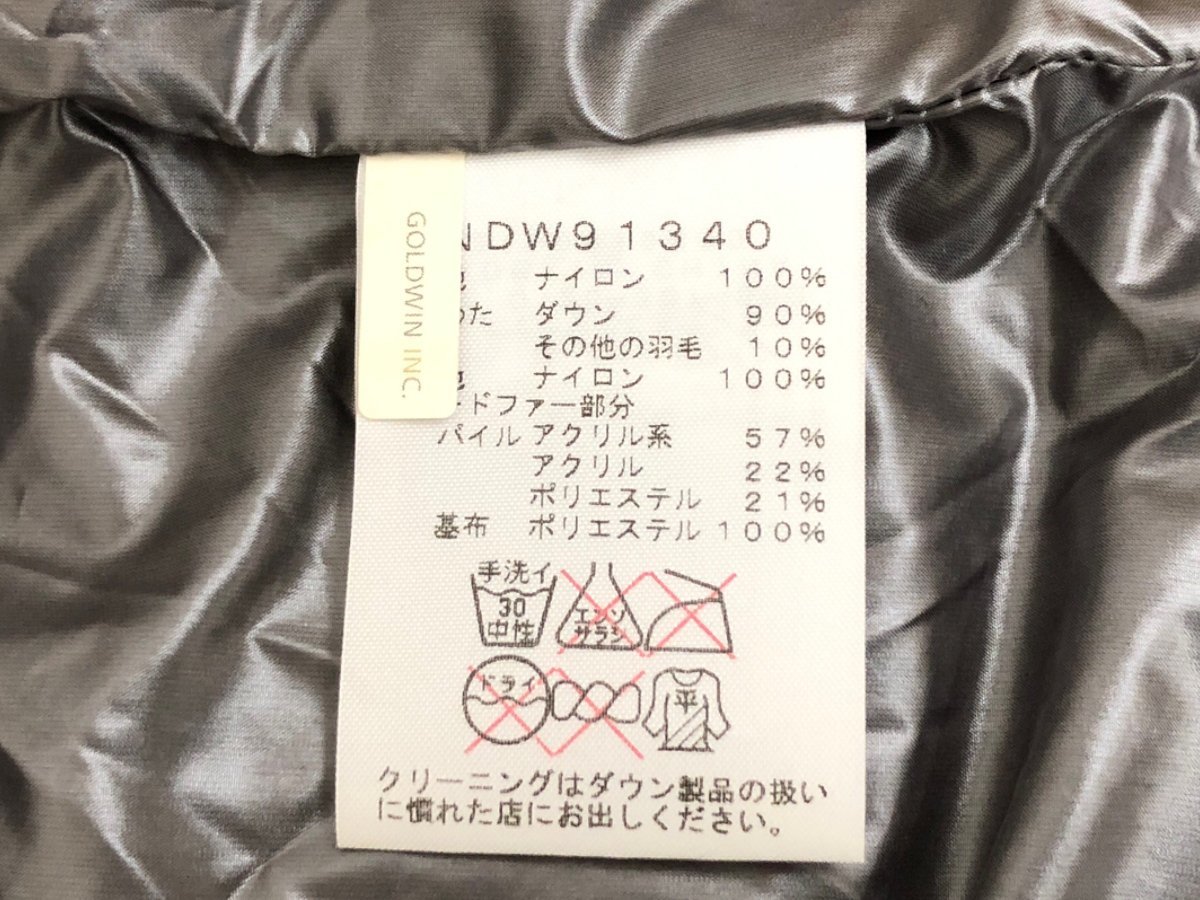 GOLDWIN INC.
NDW91340
地 ナイロン 100%
わた ダウン 90%
その他の羽毛 10%
地 ナイロン 100%
ードファー部分
パイル アクリル系 57%
アクリル 22%
ポリエステル 21%
基布 ポリエステル 100%
手洗イ
30
中性
エンソ
サラシ
ドライ
平
クリーニングはダウン製品の扱い
に慣れた店にお出しください。